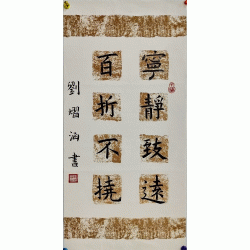 寧靜致遠
百折不撓
劉熠涵書